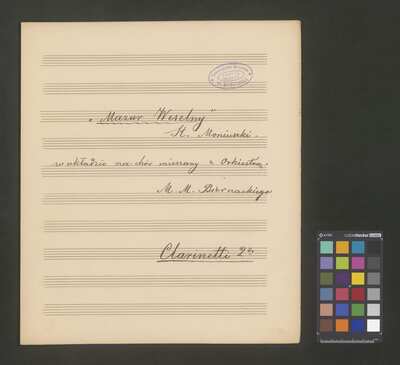 „Mazur Weselny"
St. Moniuszki.
w układzie na chór mieszany z Orkiestrą.
M. M. Biernackiego
Clarinetti 2º